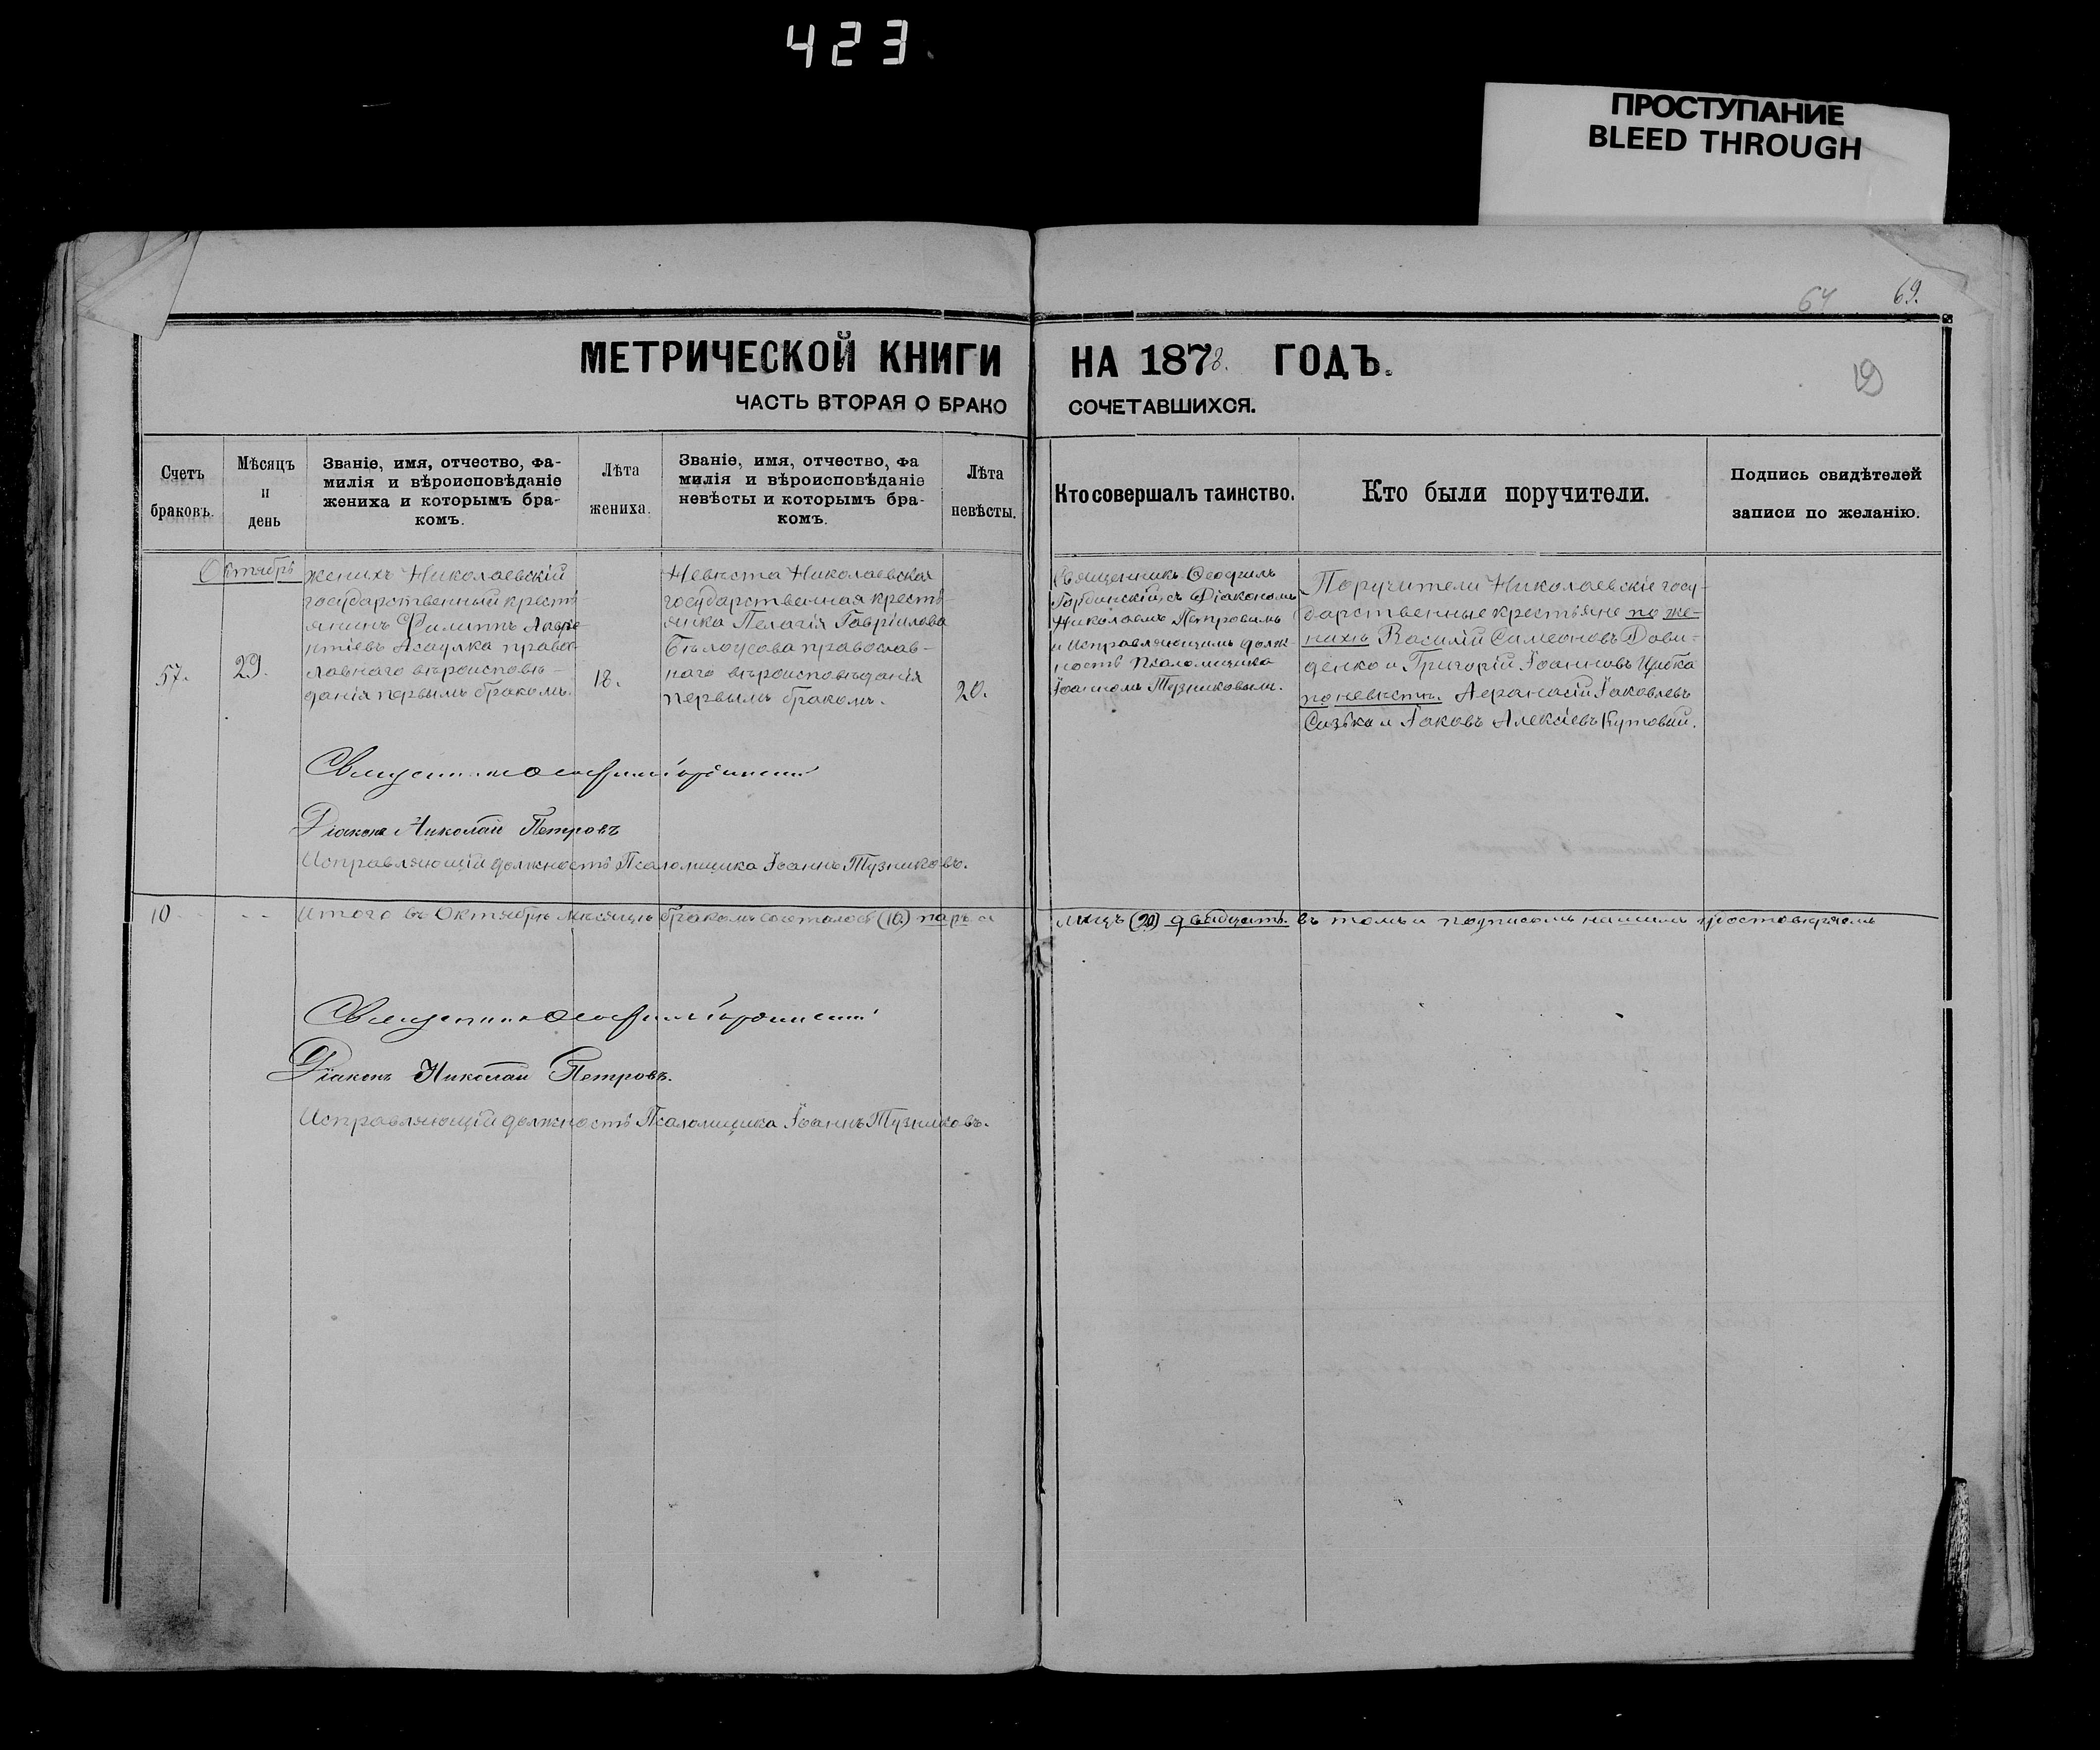 423
ПРОСТУПАНИЕ
BLEED THROUGH
64 69.
МЕТРИЧЕСКОЙ КНИГИ НА 1878. ГОДЪ.
19
ЧАСТЬ ВТОРАЯ О БРАКО СОЧЕТАВШИХСЯ.
Счетъ
браковъ.
Мѣсяцъ
и
день
Званіе, имя, отчество, фа-
милія и вѣроисповѣданіе
жениха и которымъ бра-
комъ.
Лѣта
жениха.
Званіе, имя, отчество, фа
милія и вѣроисповѣданіе
невѣсты и которымъ бра-
комъ.
Лѣта
невѣсты.
Кто совершалъ таинство.
Кто были поручители.
Подпись свидѣтелей
записи по желанію.
Октябрь
57.
29.
женихъ Николаевскій
государственный кресть-
янинъ Филиппъ Лавре-
нтіевъ Асаулка правос
лавнаго вѣроисповѣ-
данія первымъ бракомъ.
18.
Невѣста Николаевская
государственная кресть-
янка Пелагія Гавріилова
Бѣлоусова православ-
наго вѣроисповѣданія
первымъ бракомъ.
20.
Священникъ Ѳеофилъ
съ Діакономъ
Николаемъ Петровымъ
и Исправляющимъ долж-
ность Псаломщика
Іоанномъ Тузниковымъ.
Поручители Николаевскіе госу-
дарственные крестьяне по же-
ниху Василій Симеоновъ Дови-
денко и Григорій Іоанновъ
по невѣсты. Аѳанасій Іаковлевъ
и Іаковъ Алексіевъ Кутовый.
Священникъ Ѳеофилъ
Діаконъ Николай Петровъ
Исправляющій должность Псаломщика Іоаннъ Тузниковъ.
10 - - Итого въ Октябрѣ мѣсяцѣ бракомъ состалось (10) паръ а
лицъ (20) двадцать. въ томъ и подписомъ нашимъ удостовѣряемъ
Священникъ Ѳеофилъ
Діаконъ Николай Петровъ.
Исправляющій должность Псаломщика Іоаннъ Тузниковъ.